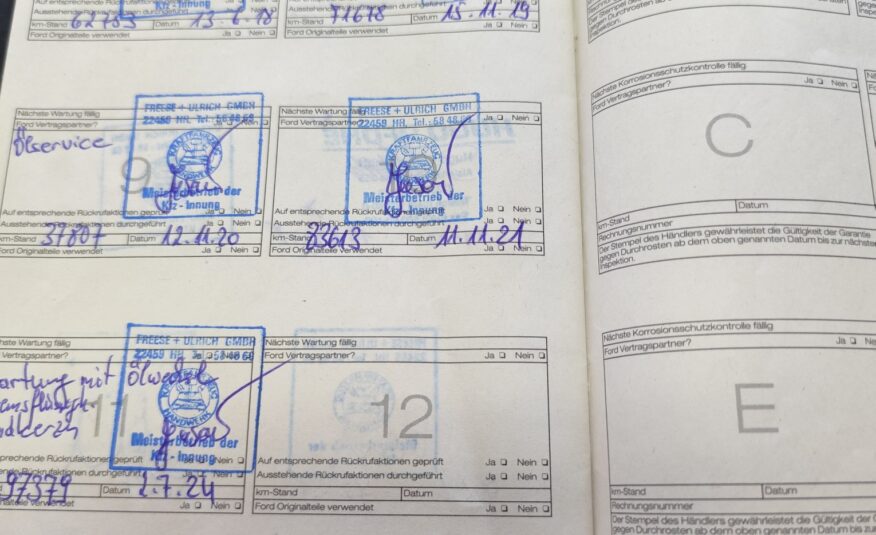 Auf entsprechende Rückrufaktionen
Ausstehende Rückrufaktionen
Kfz-Innung
Ja Nein
km-Stand 62783 Datum 13.6.18
Ford Originalteile verwendet Ja Nein
Auf entsprechende Rückrufaktionen geprüft
Ausstehende Rückrufaktionen durchgeführt
Ja Nein
km-Stand 71678 Datum 15.11.19
Ford Originalteile verwendet Ja Nein
Nächste Wartung fällig
Ford Vertragspartner? Ja Nein
Ölservice
9
FREESE + ULRICH GMBH
22459 HH, Tel.: 58 48 68
KRAFTFAHRZEUG
HANDWERK
Meisterbetrieb der
Kfz-Innung
Auf entsprechende Rückrufaktionen geprüft Ja Nein
Ausstehende Rückrufaktionen durchgeführt Ja Nein
km-Stand Datum 12.11.20
Ford Originalteile verwendet Ja Nein
Nächste Wartung fällig
Ford Vertragspartner? Ja Nein
FREESE + ULRICH GMBH
22459 HH, Tel.: 58 48 68
KRAFTFAHRZEUG
HANDWERK
Meisterbetrieb der
Kfz-Innung
Auf entsprechende Rückrufaktionen geprüft Ja Nein
Ausstehende Rückrufaktionen durchgeführt Ja Nein
km-Stand 83613 Datum 11.11.21
Ford Originalteile verwendet Ja Nein
Nächste Wartung fällig
Vertragspartner?
FREESE + ULRICH GMBH
22459 HH, Tel.: 58 48 68
artung mit Ölwechsel
11
KRAFTFAHRZEUG
HANDWERK
Meisterbetrieb der
Kfz-Innung
sprechende Rückrufaktionen geprüft Ja Nein
Rückrufaktionen durchgeführt Ja Nein
97379 Datum 2.7.24
verwendet Ja Nein
Nächste Wartung fällig
Ford Vertragspartner? Ja Nein
12
Auf entsprechende Rückrufaktionen geprüft Ja Nein
Ausstehende Rückrufaktionen durchgeführt Ja Nein
km-Stand Datum
Ford Originalteile verwendet Ja Nein
Der Stempel des Händlers
gegen Durchrosten ab dem
Inspektion.
Nächste Korrosionsschutzkontrolle fällig
Ford Vertragspartner? Ja Nein
C
km-Stand Datum
Rechnungsnummer
Der Stempel des Händlers gewährleistet die Gültigkeit der Garantie
gegen Durchrosten ab dem oben genannten Datum bis zur nächsten
Inspektion.
Nächste Korrosionsschutzkontrolle fällig
Ford Vertragspartner? Ja Nein
E
km-Stand Datum
Rechnungsnummer
Der Stempel des Händlers gewährleistet die Gültigkeit der
gegen Durchrosten ab dem oben genannten Datum bis zur